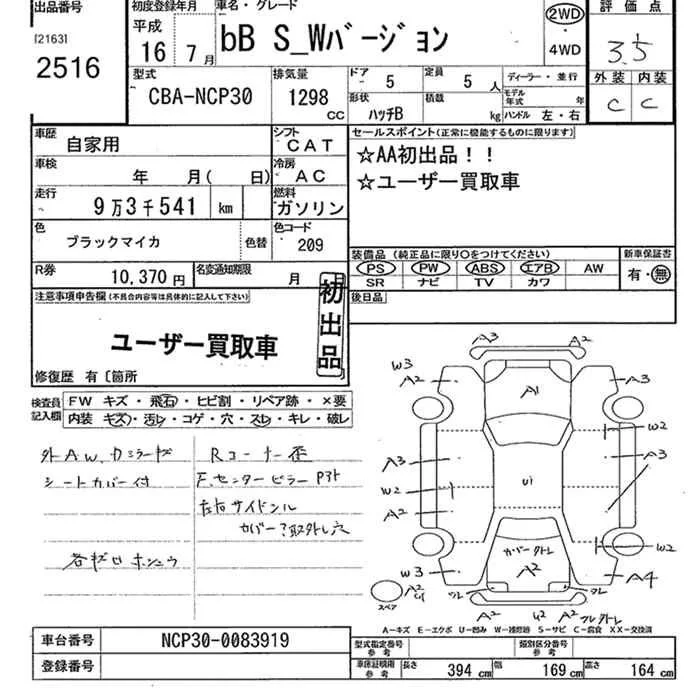 出品番号
[2163]
2516
初度登録年月
平成
16 7月
車名・グレード
bB S_Wバージョン
2WD
・
4WD
評価点
3.5
外装 内装
C C
型式
CBA-NCP30
排気量
1298
CC
ドア 5
定員 5人
形状 ハッチB
積載 kg
ディーラー・並行
モデル年式 年
ハンドル 左・右
車歴 自家用
シフト CAT
車検 年 月( 日)
冷房 AC
走行 9万3千541 km
燃料 ガソリン
色 ブラックマイカ 色替
色コード 209
R券 10,370円
名変通知期限 月
セールスポイント(正常に機能するものに限ります)
☆AA初出品!!
☆ユーザー買取車
装備品 (純正品に限り○をつけてください)
PS PW ABS エアB AW
SR ナビ TV カワ
新車保証書
有・無
後日品
注意事項申告欄(不具合内容等は具体的に記入して下さい)
初出品
ユーザー買取車
修復歴 有〔箇所
検査員記入欄
FW キズ・飛石・ヒビ割・リペア跡・×要
内装 キズ・汚レ・コゲ・穴・スレ・キレ・破レ
外AW.
シートカバー付
Rコーナー歪
F.センターピラー
左右サイドシル
カバー?取外し穴
A3 A2
W3
A2 A3
A1
W2
A3 A3
U1
W2
A2
カバー
W2
W3 A2 A4
A2
スペア
A2 A2
A-キズ E-エクボ U-凹み W-補修跡 S-サビ C-腐食 XX-交換済
車台番号 NCP30-0083919
登録番号
型式指定番号 参考
類別区分番号 参考
車庫証明用 参考
長さ 394 cm 幅 169 cm 高さ 164 cm